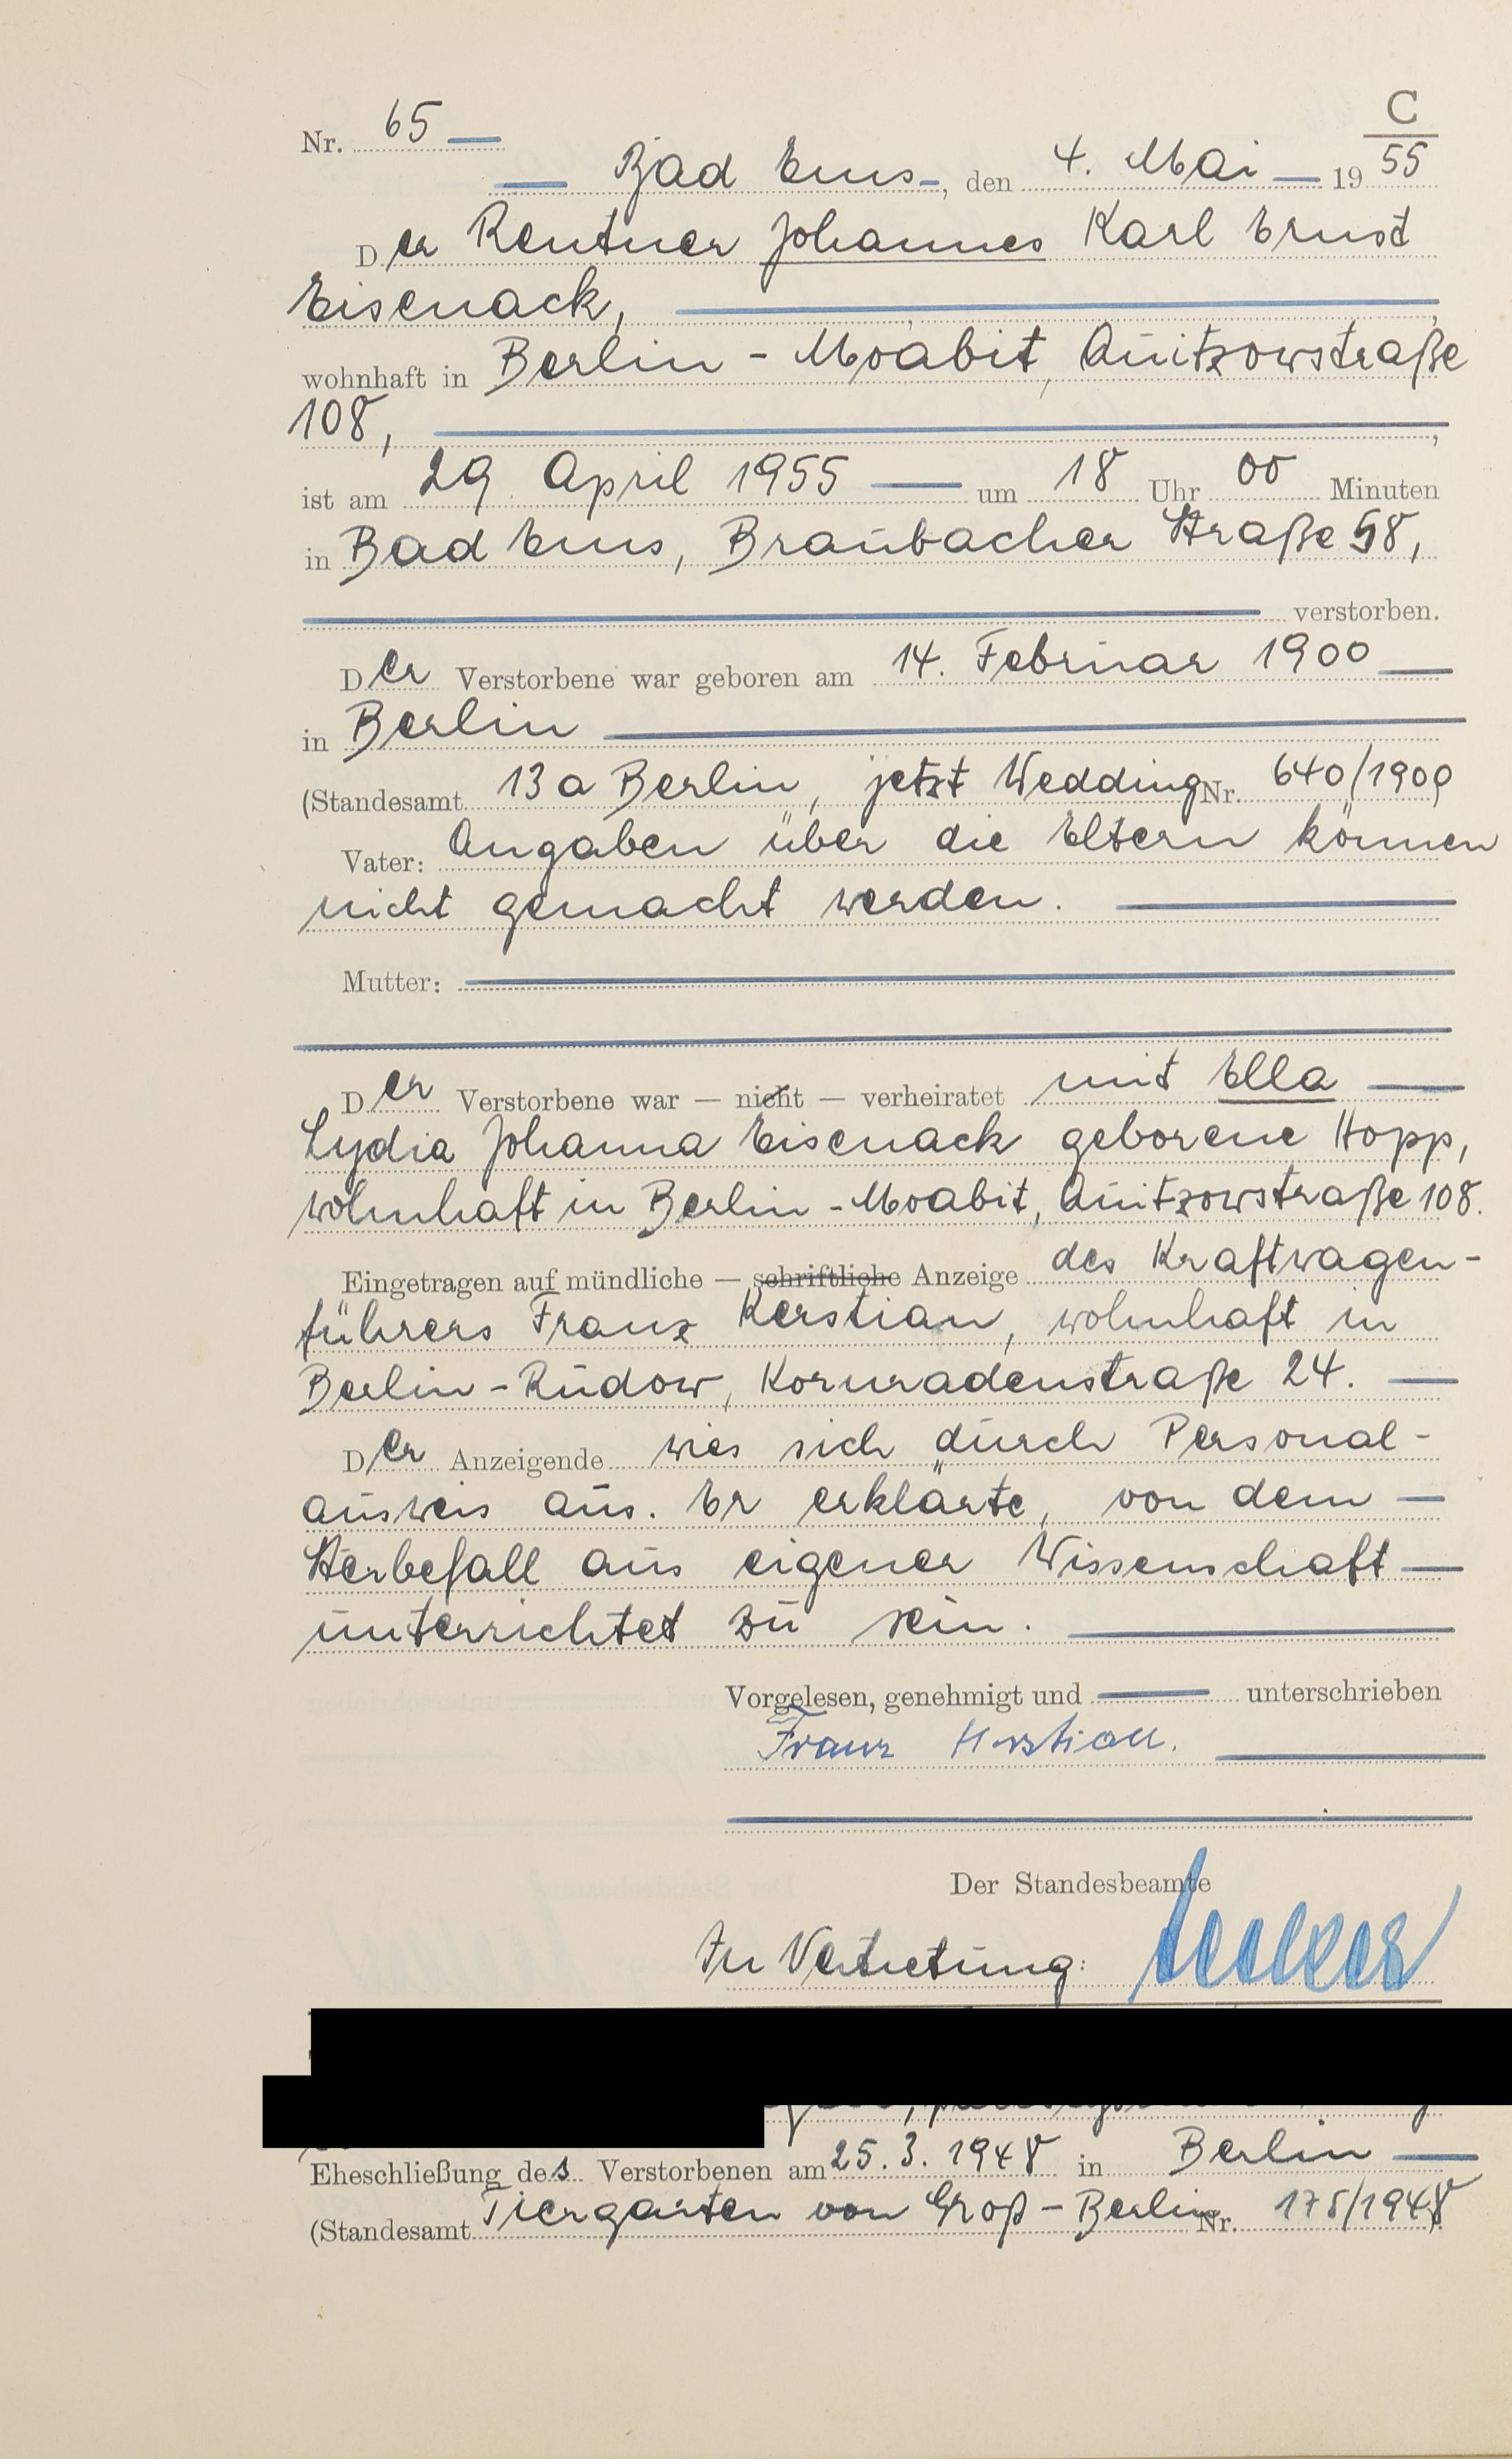 C
Nr. 65
Bad Ems, den 4. Mai 1955
Der Rentner Johannes Karl Ernst
Eisenack,
wohnhaft in Berlin - Moabit, Quitzowstraße
108,
ist am 29. April 1955 um 18 Uhr 00 Minuten
in Bad Ems, Braubacher Straße 58,
verstorben.
Der Verstorbene war geboren am 14. Februar 1900
in Berlin
(Standesamt 13a Berlin, jetzt Wedding Nr. 640/1900)
Vater: Angaben über die Eltern können
nicht gemacht werden.
Mutter:
Der Verstorbene war — nicht — verheiratet mit Ella
Lydia Johanna Eisenack geborene Hopp,
wohnhaft in Berlin - Moabit, Quitzowstraße 108.
Eingetragen auf mündliche — schriftliche Anzeige des Kraftwagen-
führers Franz Kerstian, wohnhaft in
Berlin - Rudow, Kornradenstraße 24.
Der Anzeigende wies sich durch Personal-
ausweis aus. Er erklärte, von dem
Sterbefall aus eigener Wissenschaft
unterrichtet zu sein.
Vorgelesen, genehmigt und unterschrieben
Franz Kerstian.
Der Standesbeamte
In Vertretung:
Eheschließung des Verstorbenen am 25.3.1948 in Berlin
(Standesamt Tiergarten von Groß - Berlin Nr. 175/1948)